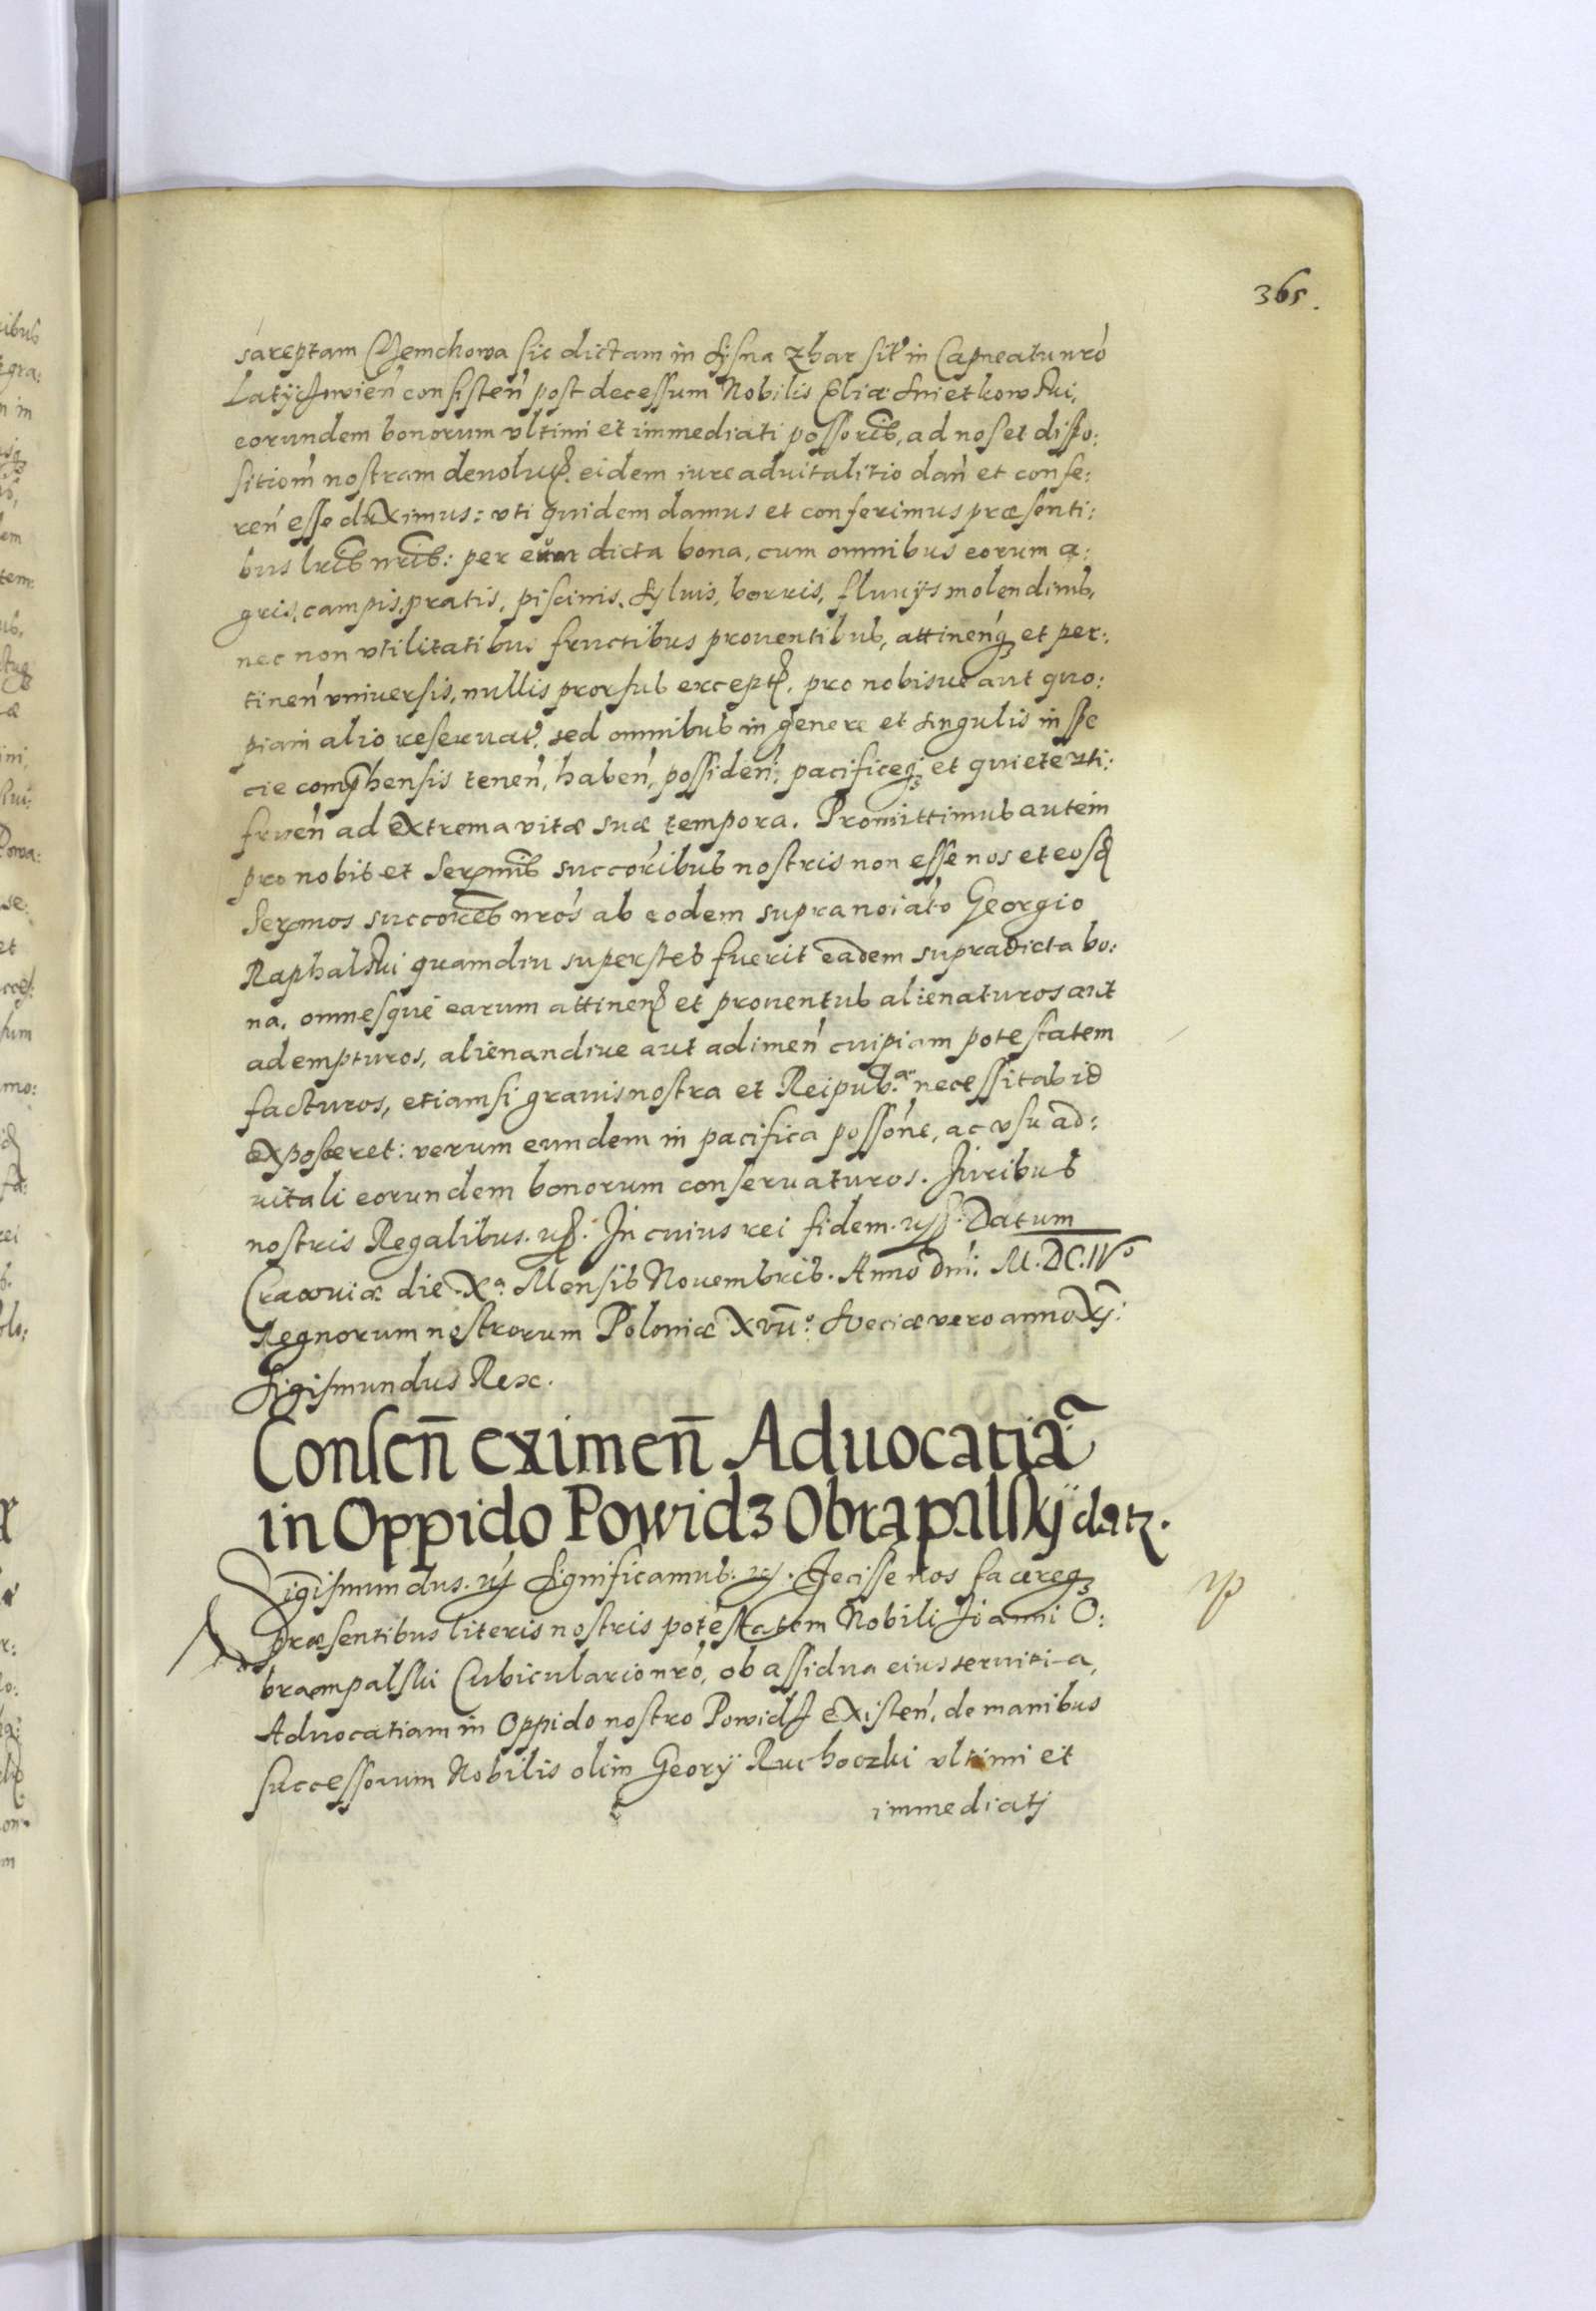 365.
sareptam Czemchowa sic dictam in Lysna zhar sit in Capneatu nrô
Latyczovien̄ consisten̄ post decessum Nobilis Eliæ Snietkowski,
eorundem bonorum vltimi et immediati possorīs, ad nos et dispo:
sitiom̄ nostram devolut. eidem iure aduitalitio dan̄ et confe:
ren̄ esse duximus: vti quidem damus et conferimus præsenti:
bus lrīs nrīs: per eum dicta bona, cum omnibus eorum a:
gris, campis, pratis, piscinis, syluis, borris, fluuijs molendinis,
nec non vtilitatibus fructibus prouentibus, attinen̄q₃ et per:
tinen̄ vniuersis, nullis prorsus except. pro nobisue aut quo:
piam alio reseruat, sed omnibus in genere et singulis in spe
cie comp̄hensis tenen̄, haben̄, possiden̄, pacificeq₃ et quiete vti:
fruen̄ ad extrema vitæ suæ tempora. Promittimus autem
pro nobis et Sermīs succorībus nostris non esse nos et eosq
Sermos succorēs nrōs ab eodem supranoiāto Georgio
Raphalski quamdiu superstes fuerit eadem supradicta bo:
na, omnesque earum attinen et prouentus alienaturos aut
adempturos, alienandiue aut adimen̄ cuipiam potestatem
facturos, etiamsi grauis nostra et Reipub.æ necessitas id
exposceret: verum eundem in pacifica possōne, ac vsu ad:
uitali eorundem bonorum conseruaturos. Juribus
nostris Regalibus. etc. In cuius rei fidem. etc. Datum
Cracouiæ die Xª Mensis Nouembris. Anno dnī. M.DC.IVº
Regnorum nostrorum Poloniæ XVII.º Sueciæ vero anno XI:
Sigismundus Rex.
Consen̄ eximen̄ Aduocatiā
in Oppido Powidz Obrapalskÿ datz.
Sigismundus. etc Significamus. etc. Fecisse nos facereq₃
præsentibus literis nostris potestatem Nobili Joanni O:
brampalski Cubiculario nrō, ob assidua eius seruiti-a,
Aduocatiam in Oppido nostro Powidz existen̄, de manibus
successorum Nobilis olim Georÿ Ruchoczki vltimi et
immediatj